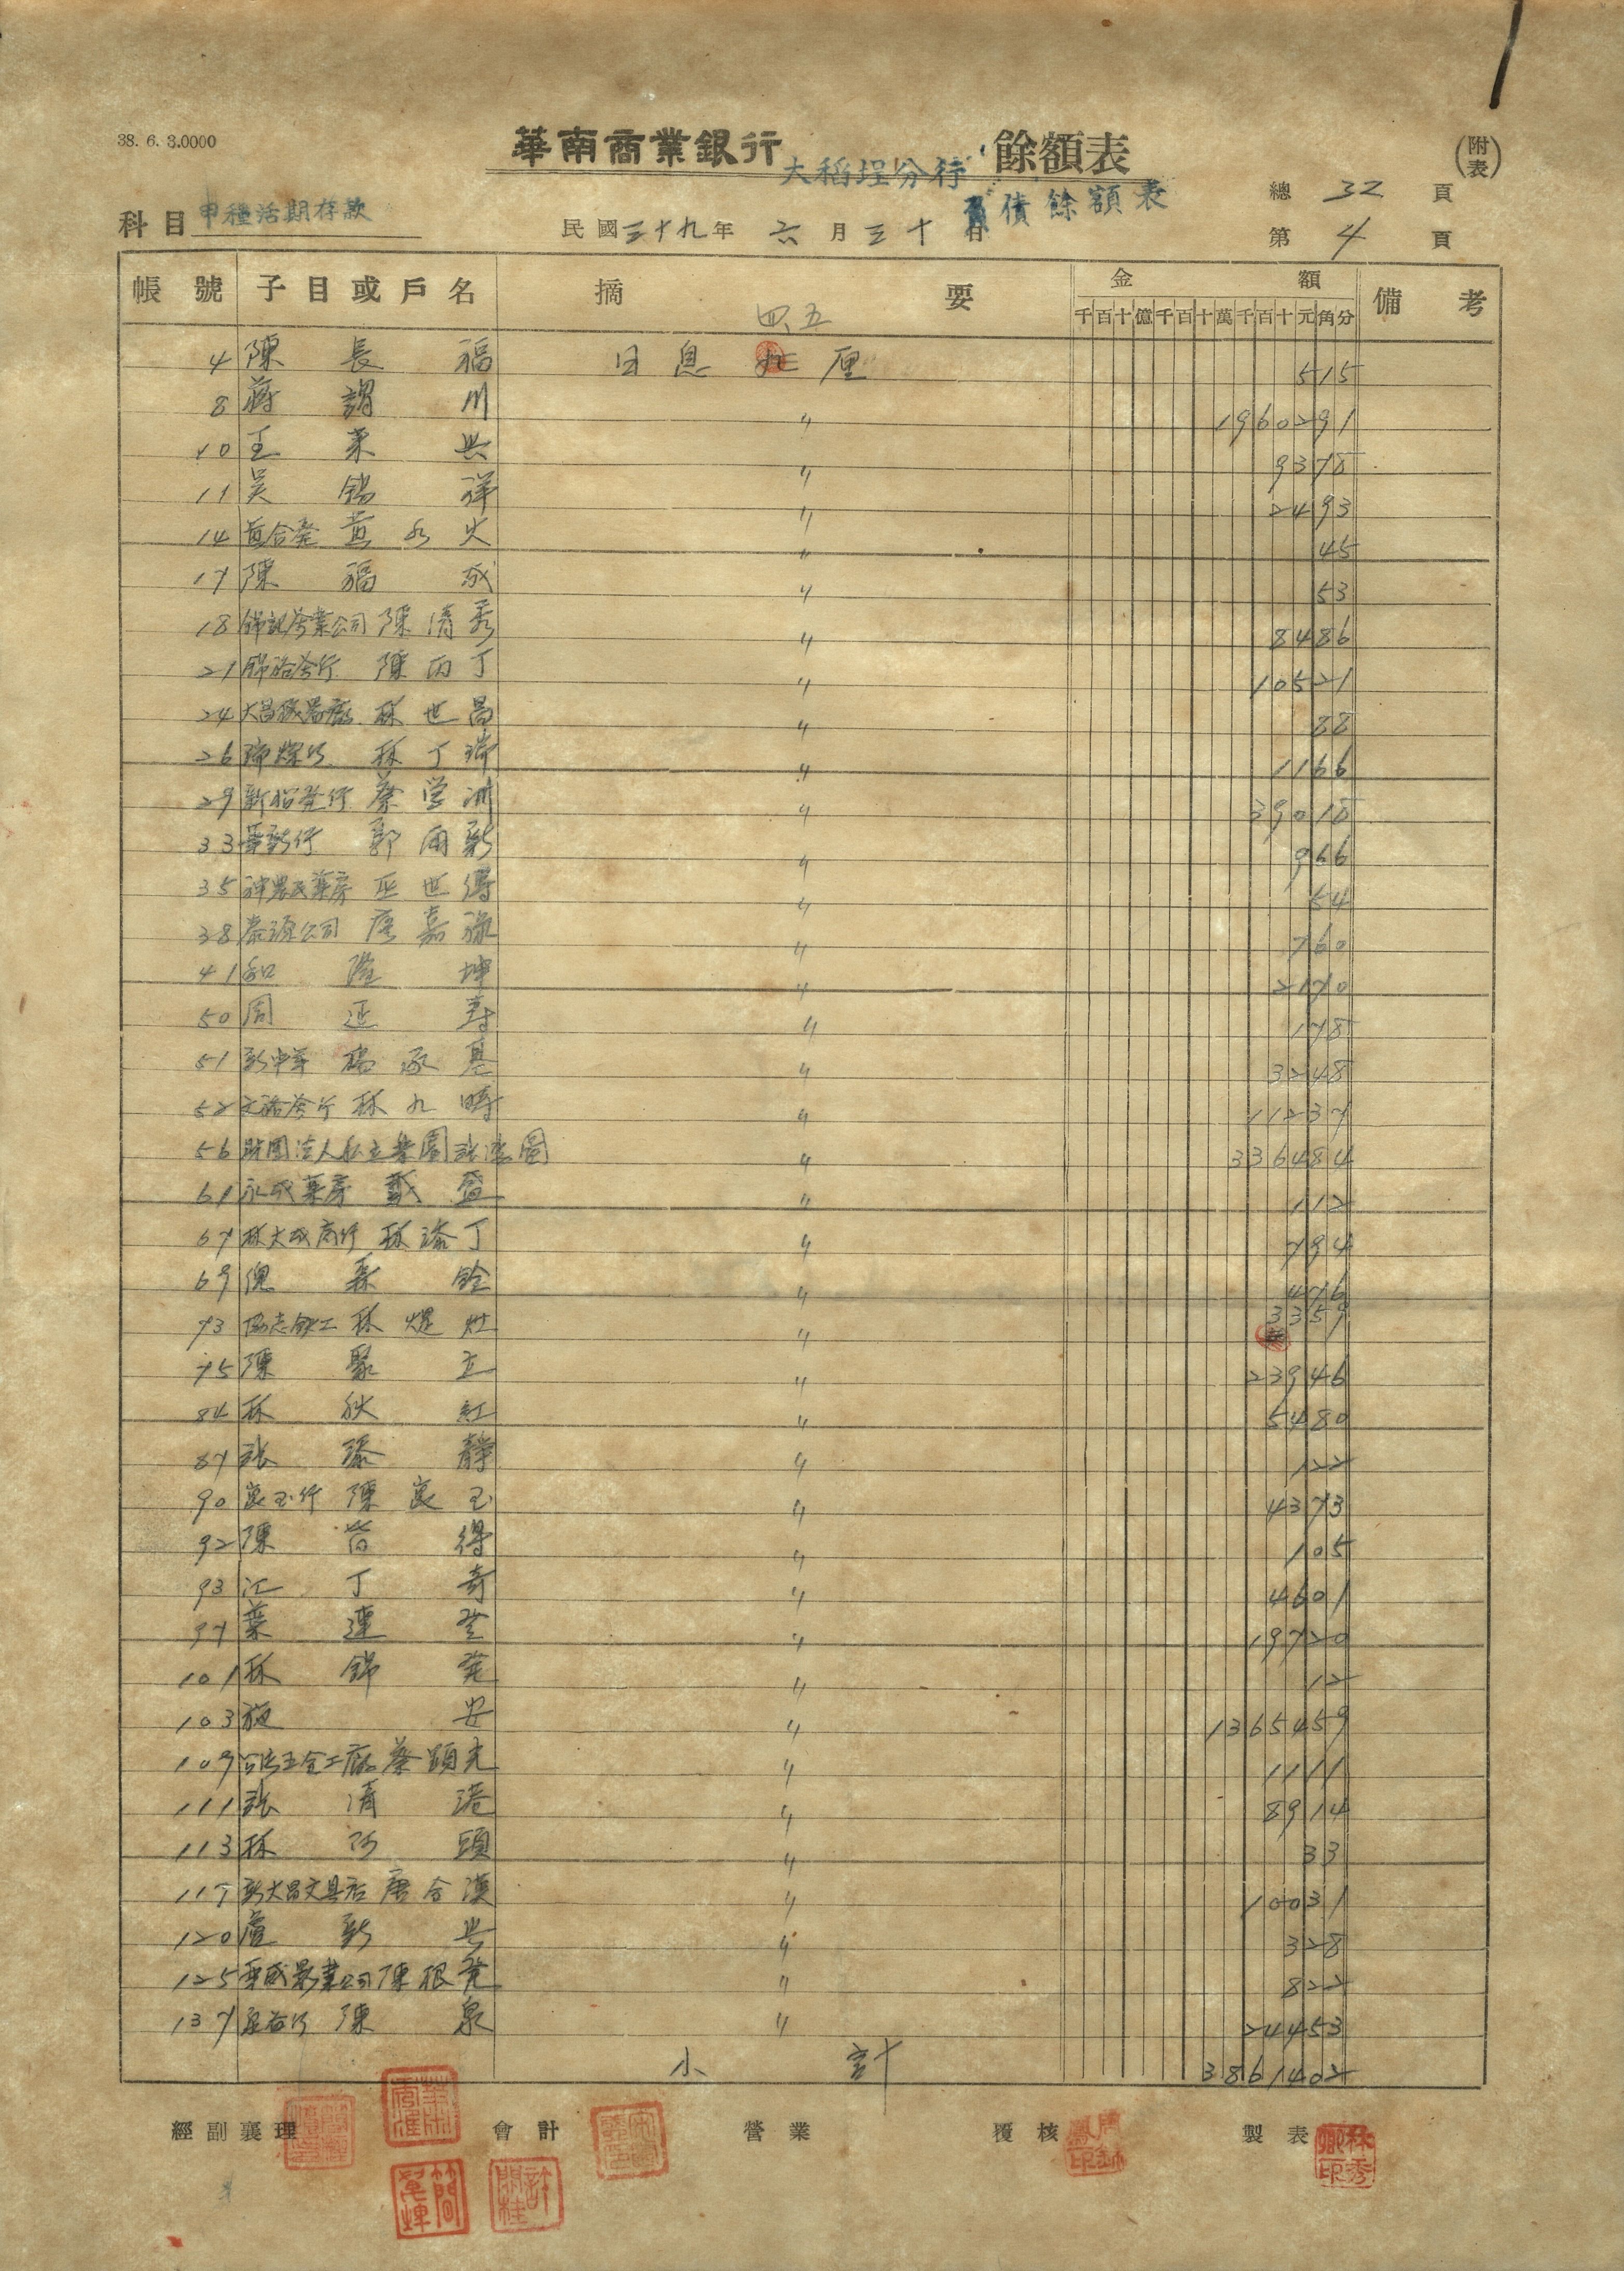 38. 6. 3.0000
華南商業銀行 大稻埕分行 餘額表
負債餘額表
(附表)
總 32 頁
科目 甲種活期存款
民國三十九年 六月三十日
第 4 頁
帳號 子目或戶名 摘要 金額 備考
千百十億千百十萬千百十元角分
四五
4 陳長福 日息 厘 515
8 蔣謂川 〃 1960291
10 王來興 〃 9378
11 吳錫祥 〃 2493
14 黃合發 黃水火 〃 45
17 陳福成 〃 53
18 錦記營業公司 陳清秀 〃 8486
21 陳丙丁 〃 10521
24 大昌機器廠 林世昌 〃 88
26 瑞煤行 林丁瑞 〃 1166
29 蔡學洲 〃 39018
33 郭雨新 〃 966
35 神農氏藥房 巫世得 〃 54
38 泰源公司 唐嘉祿 〃 760
41 和隆坤 〃 2170
50 周延壽 〃 178
51 新中華 楊承基 〃 3248
52 林九時 〃 11237
56 財團法人私立樂園 〃 336484
61 永成藥房 戴盛 〃 112
67 林大成商行 林添丁 〃 794
69 倪森銓 〃 476
73 協志鐵工 林煶灶 〃 3359
75 陳聚立 〃 23946
84 林秋紅 〃 5480
87 張添靜 〃 122
90 良玉行 陳良玉 〃 4373
92 陳得 〃 105
93 江丁奇 〃 4601
97 葉連登 〃 19720
101 林錦發 〃 12
103 施安 〃 1365459
109 五金工廠 蔡顯光 〃 1111
111 張清港 〃 8914
113 林阿頭 〃 33
117 新大昌文具店 唐金漢 〃 10031
120 盧新興 〃 328
125 華成影業公司 陳根發 〃 822
137 陳泉 〃 24453
小計 3861402
經副襄理 會計 營業 覆核 製表
林秀卿印